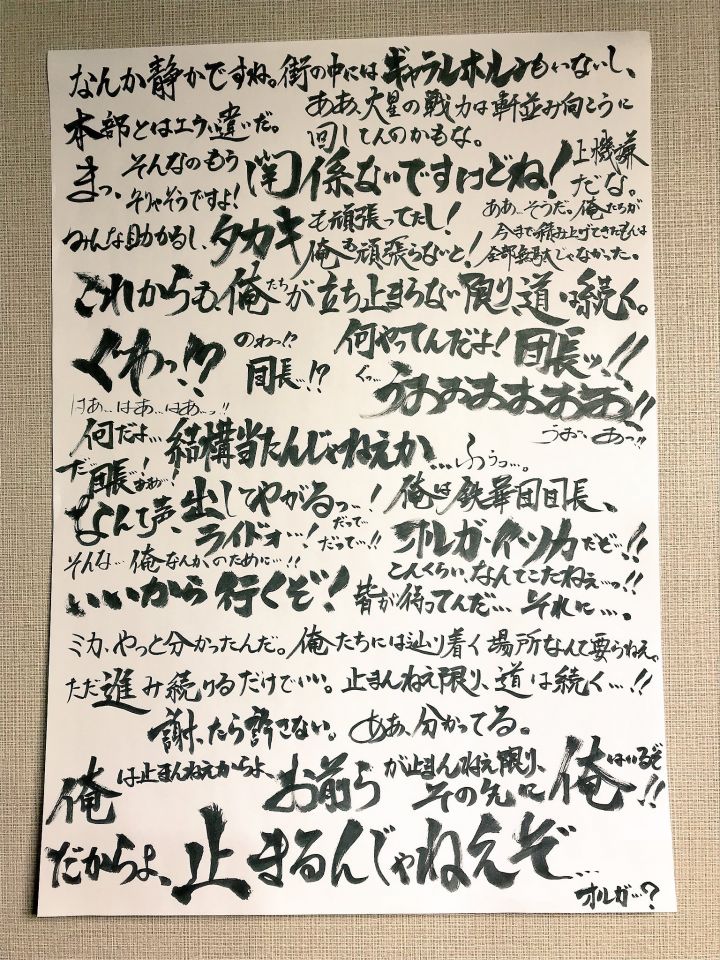 なんか静かですね。街の中にはギャラルホルンもいないし、
本部とはエラい違いだ。
ああ、火星の戦力は軒並み向こうに
回してんのかもな。
まっ、そんなのもう関係ないですけどね!
上機嫌
だな。
そりゃそうですよ!
みんな助かるし、タカキも頑張ってたし!
俺も頑張らないと!
ああ…そうだ。俺たちが
今まで積み上げてきたもんは
全部無駄じゃなかった。
これからも、俺たちが立ち止まらない限り、道は続く。
ぐわっ!?
のわっ!?
団長…!?
何やってんだよ!団長ッ!!
ぐっ…
うおおおおおお!!
はあ…はあ…はあ…っ!!
うおっ、あっ!!
何だよ…結構当たんじゃねえか…ふぅっ…。
だ…団長…!ああぁ…
なんて声、出してやがるっ…!
ライドォ…!
だって…
だって…!!
俺は鉄華団団長、
オルガ・イツカだぞ…!!
こんくらい、なんてこたねぇ…っ!!
そんな…俺なんかのために…!!
いいから行くぞ!
皆が待ってんだ…それに…。
ミカ、やっと分かったんだ。俺たちには辿り着く場所なんて要らねえ。
ただ進み続けるだけでいい。止まんねえ限り、道は続く…!!
謝ったら許さない。ああ、分かってる。
俺は止まんねえからよ
お前らが止まんねえ限り、
その先に俺はいるぞ…!!
だからよ、止まるんじゃねえぞ…
オルガ…?